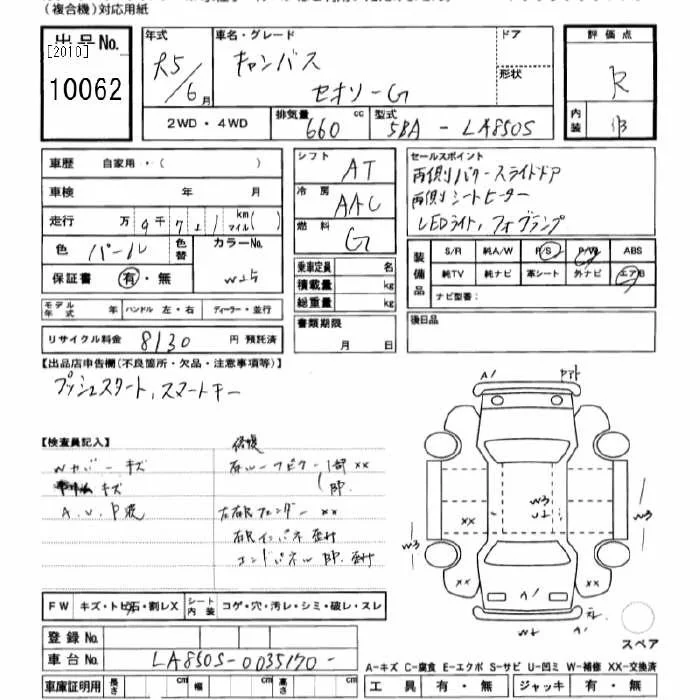 (複合機)対応用紙
出品No.
[2010]
10062
年式
R5/6月
車名・グレード
キャンバス
セオリーG
ドア
形状
評価点
R
内装
B
2WD・4WD
排気量
660cc
型式
5BA-LA850S
車歴 自家用・( )
車検 年 月
走行 万9千7百1 km マイル( )
色 パール
色替
カラーNo.
W25
保証書 有・無
モデル年式
ハンドル 左・右
ディーラー・並行
リサイクル料金 8130 円 預託済
シフト AT
冷房 AAC
燃料 G
乗車定員 名
積載量 kg
総重量 kg
書類期限
月 日
セールスポイント
両側パワースライドドア
両側シートヒーター
LEDライト、フォグランプ
装備品
S/R 純A/W P/S P/W ABS
純TV 純ナビ 革シート 外ナビ エアB
ナビ型番:
後日品
【出品店申告欄(不良箇所・欠品・注意事項等)】
プッシュスタート、スマートキー
【検査員記入】
修復
Wカバーキズ
キズ
A.U.P波
右ルーフピラー1部××
左右Rフェンダー××
右Rインパネ
エンドパネル
A1
W3
U2
W3
W3
××
××
××
A1
W2
スペア
FW キズ・トビ石・割レX
シート内装 コゲ・穴・汚レ・シミ・破レ・スレ
登録No.
車台No. LA850S-0035170-
車庫証明用 長さ cm 幅 cm 高さ cm
A-キズ C-腐食 E-エクボ S-サビ U-凹ミ W-補修 XX-交換済
工具 有・無 ジャッキ 有・無